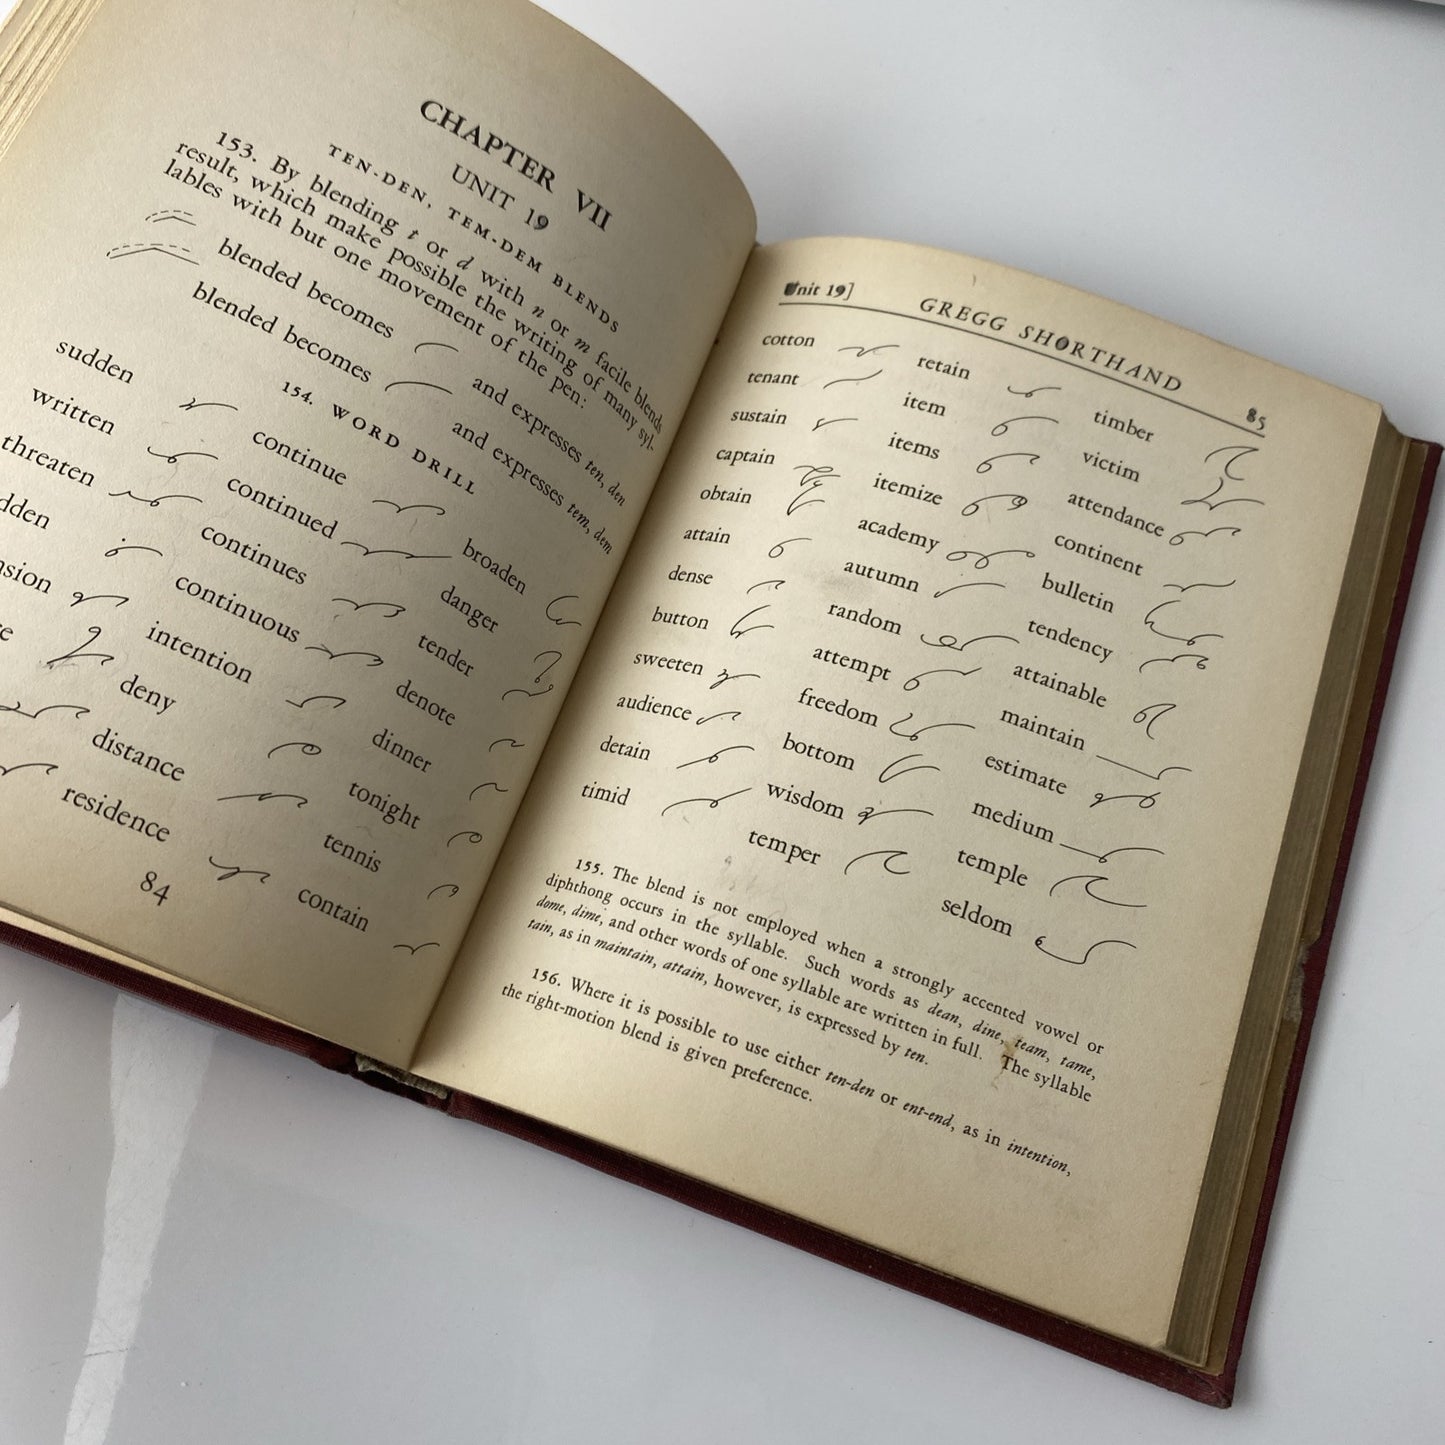 CHAPTER VII
UNIT 19
TEN-DEN, TEM-DEM BLENDS
153. By blending t or d with n or m facile blends
result, which make possible the writing of many syl-
lables with but one movement of the pen:
blended becomes and expresses ten, den
blended becomes and expresses tem, dem
154. WORD DRILL
sudden
written
threaten
continue
continued
continues
continuous
intention
deny
distance
residence
broaden
danger
tender
denote
dinner
tonight
tennis
contain
84
Unit 19] GREGG SHORTHAND 85
cotton
tenant
sustain
captain
obtain
attain
dense
button
sweeten
audience
detain
timid
retain
item
items
itemize
academy
autumn
random
attempt
freedom
bottom
wisdom
temper
timber
victim
attendance
continent
bulletin
tendency
attainable
maintain
estimate
medium
temple
seldom
155. The blend is not employed when a strongly accented vowel or
diphthong occurs in the syllable. Such words as dean, dine, team, tame,
dome, dime, and other words of one syllable are written in full. The syllable
tain, as in maintain, attain, however, is expressed by ten.
156. Where it is possible to use either ten-den or ent-end, as in intention,
the right-motion blend is given preference.